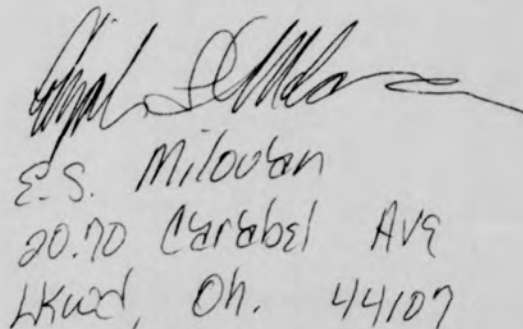 E.S. Milovan
2070 Carabel Ave
Lkwd, Oh. 44107